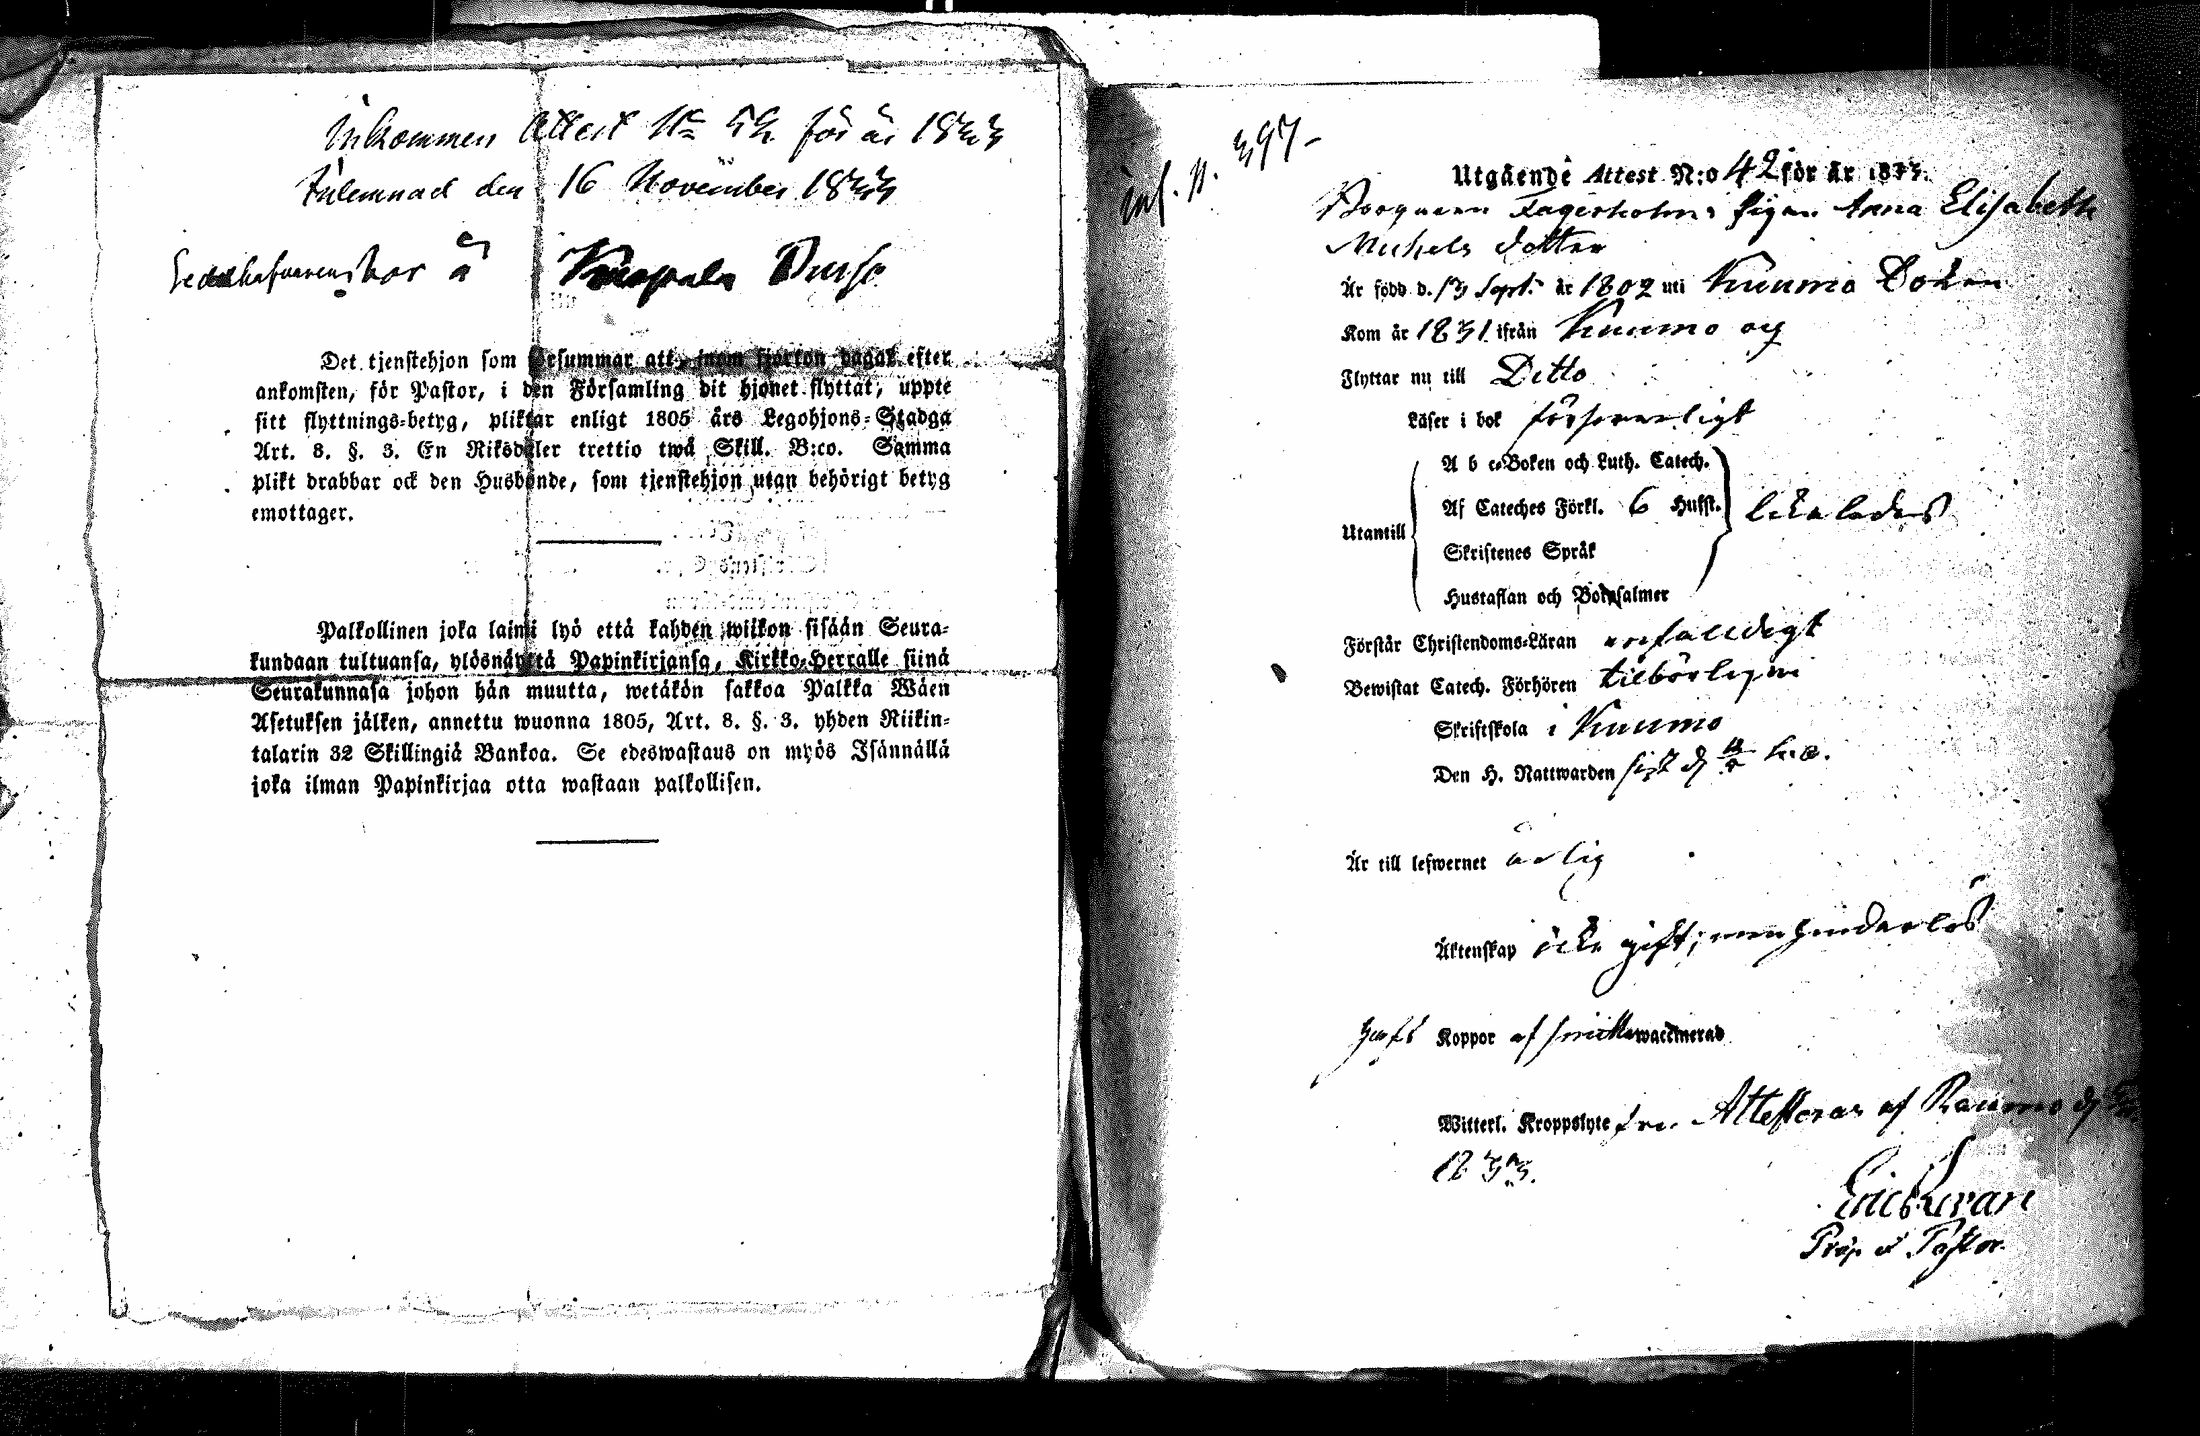 Inkommen Attest No 52 för år 1833
inlemnad den 16 November 1833
å
Det tjenstehjon som försummar att, inom fjorton dagar efter
ankomsten, för Pastor, i den Församling dit hjonet flyttat, uppte
sitt flyttnings-betyg, pliktar enligt 1805 års Legohjons-Stadga
Art. 8. §. 3. En Riksdaler trettio twå Skill. B:co. Samma
plikt drabbar ock den Husbonde, som tjenstehjon utan behörigt betyg
emottager.
Palkollinen joka laimi lyö että kahden wiikon sisään Seura-
kundaan tultuansa, ylösnäyttä Papinkirjansa, Kirkko-Herralle siinä
Seurakunnasa johon hän muutta, wetäkön sakkoa Palkka Wäen
Asetuksen jälken, annettu wuonna 1805, Art. 8. §. 3. yhden Riikin-
talarin 32 Skillingiä Bankoa. Se edeswastaus on myös Isännällä
joka ilman Papinkirjaa otta wastaan palkollisen.
inf. p. 397-
Utgående Attest N:o 42 för år 1833.
Borgaren Fagerholms Pigan Anna Elisabeth
Michels dotter
Är född d. 13 Sept. år 1802 uti Kuumo Socken
Kom år 1831 ifrån Kuumo og
Flyttar nu till Ditto
Läser i bok försvarligt
A b c-Boken och Luth. Catech.
Af Cateches Förkl. 6 Hufst.
Utantill likaledes
Skriftenes Språk
Hustaflan och Botpsalmer
Förstår Christendoms-Läran enfalldigt
Bewistat Catech. Förhören tilbörligen
Skriftskola i Kuumo
Den H. Nattwarden sist d.
Är till lefwernet ärlig
Äktenskap icke gift; men hinderlös
haft Koppor af waccinerad
Witterl. Kroppslyte fri. Attesteras af Raumo d.
1833.
Eric
Prop. et Pastor.